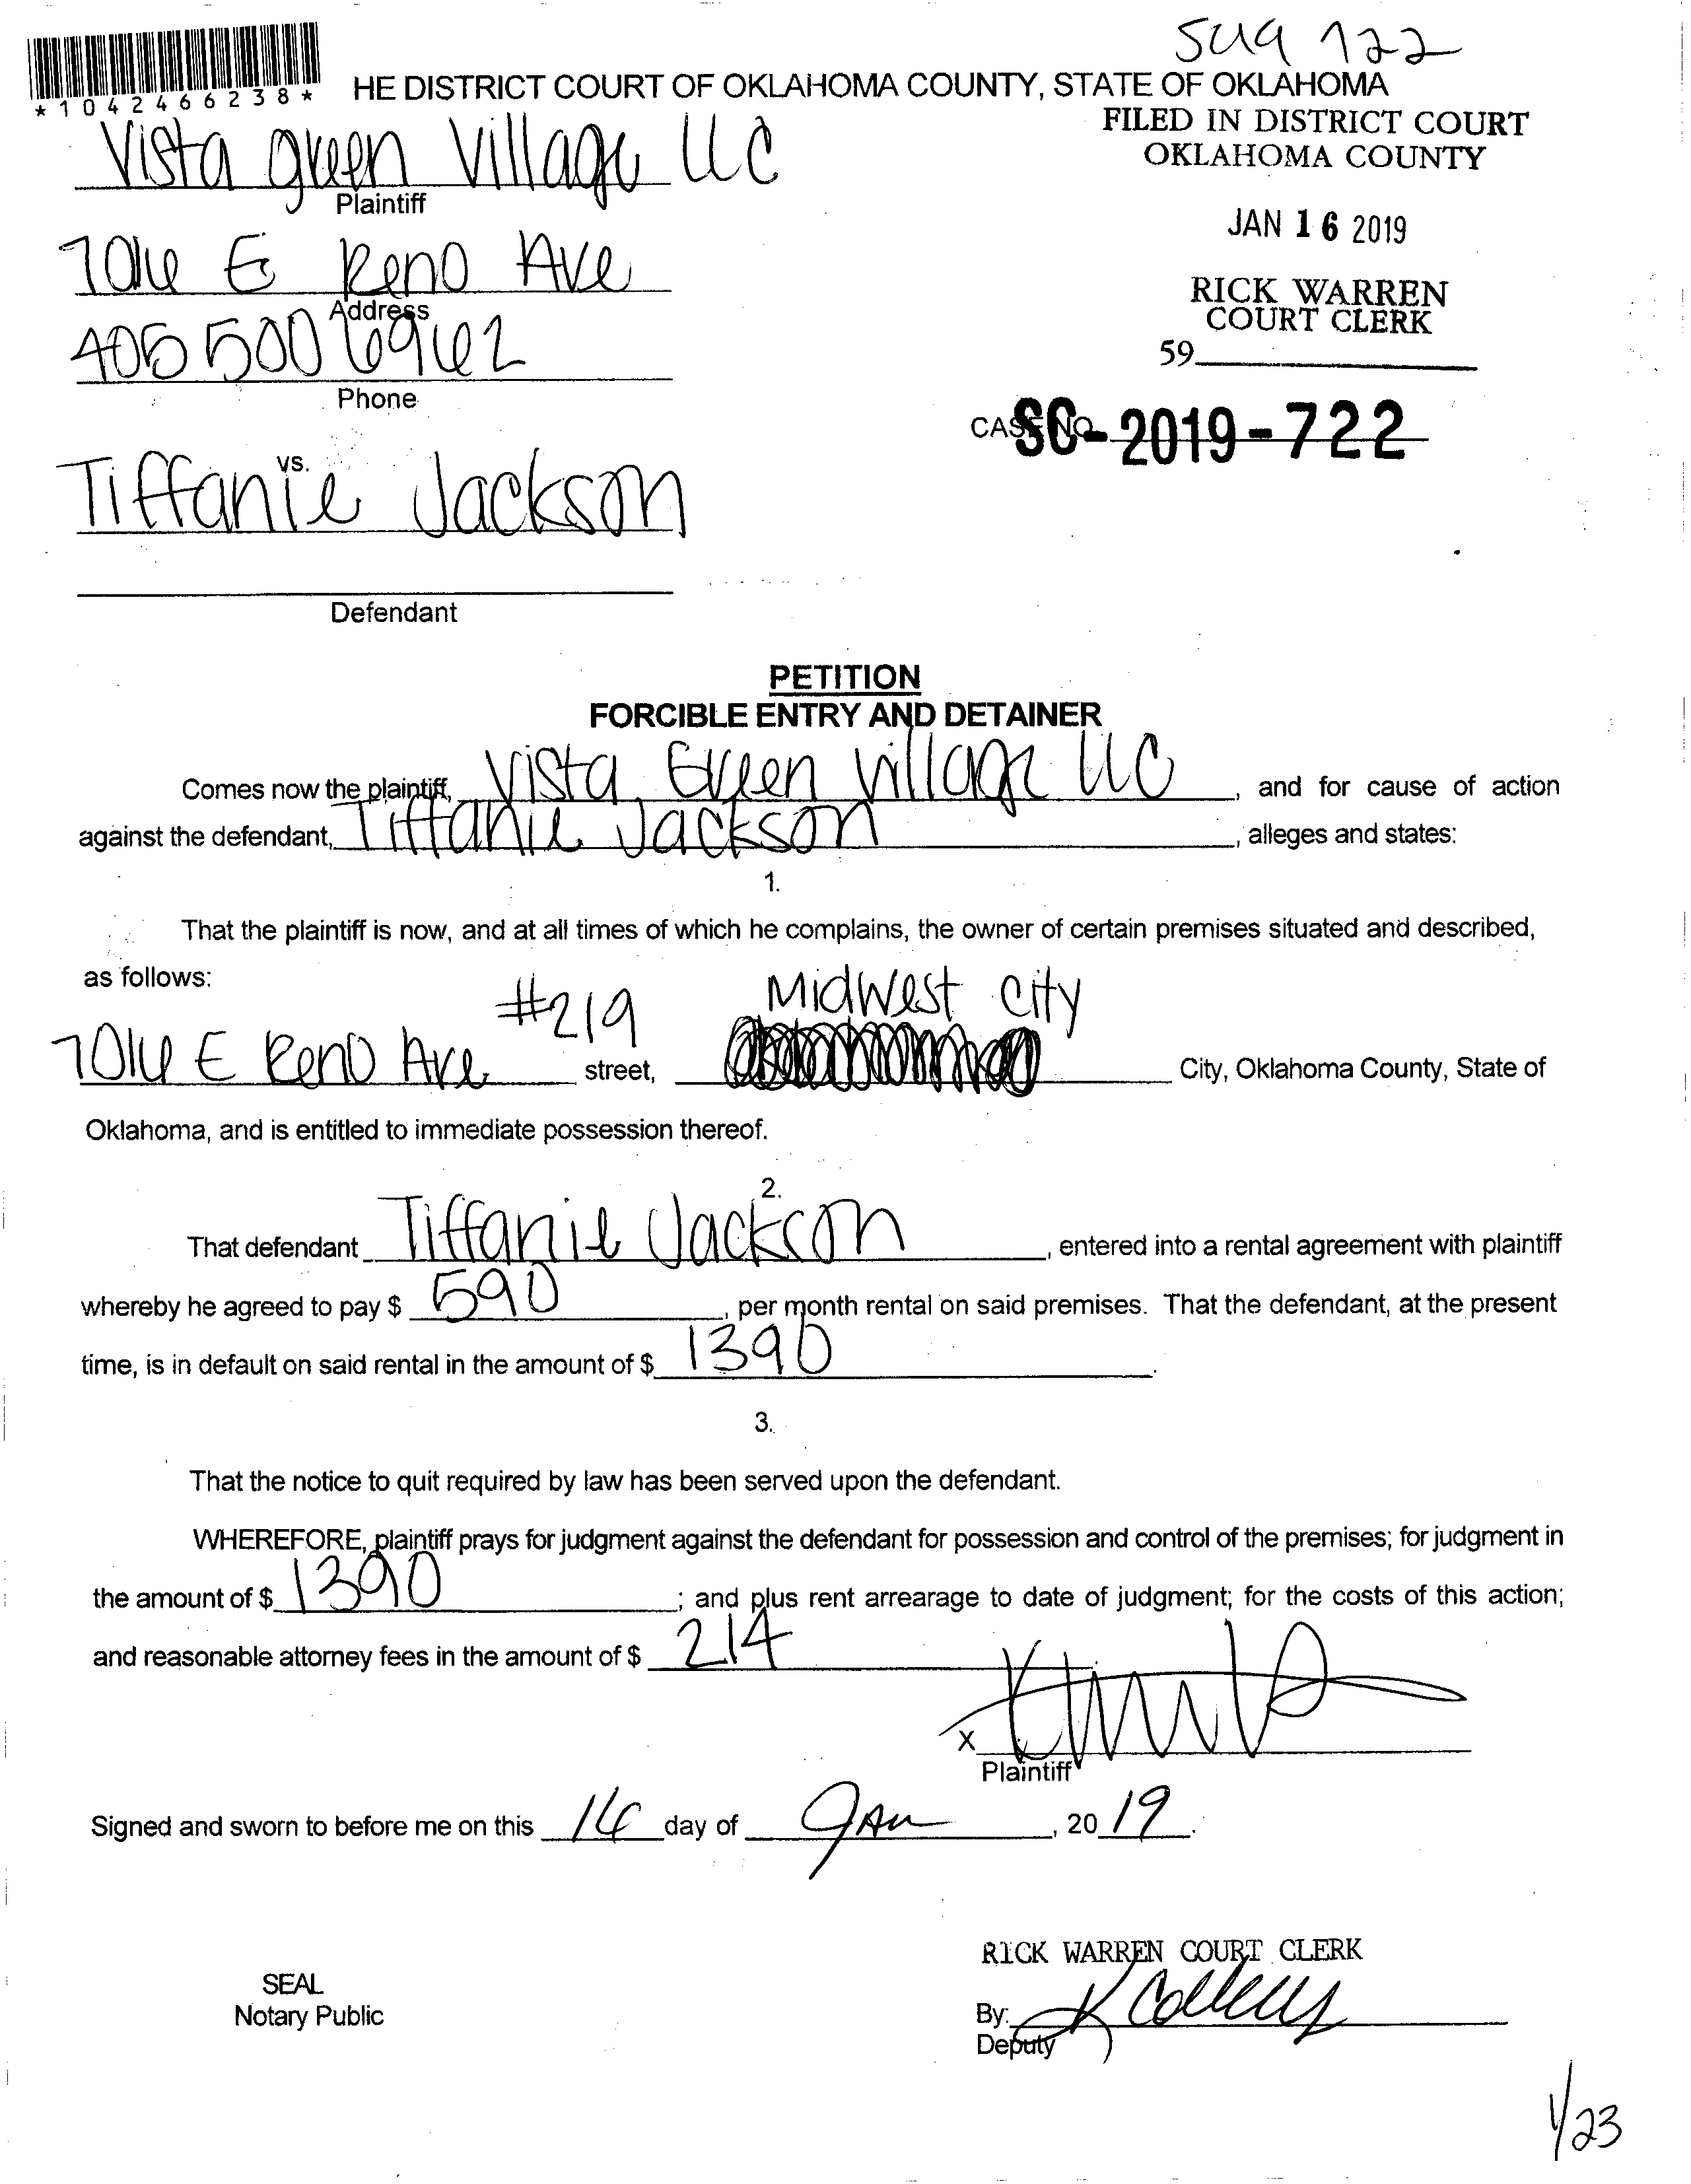 *1042466238*
HE DISTRICT COURT OF OKLAHOMA COUNTY, STATE OF OKLAHOMA
FILED IN DISTRICT COURT
OKLAHOMA COUNTY
Vista green Village LLC
Plaintiff
JAN 16 2019
7016 E Reno Ave
Address
RICK WARREN
COURT CLERK
405 500 6962
Phone
59
CASE NO. SC-2019-722
vs.
Tiffanie Jackson
Defendant
PETITION
FORCIBLE ENTRY AND DETAINER
Comes now the plaintiff, Vista Green Village LLC, and for cause of action
against the defendant, Tiffanie Jackson, alleges and states:
1.
That the plaintiff is now, and at all times of which he complains, the owner of certain premises situated and described,
as follows:
#219 Midwest City
7016 E Reno Ave street, City, Oklahoma County, State of
Oklahoma, and is entitled to immediate possession thereof.
2.
That defendant Tiffanie Jackson, entered into a rental agreement with plaintiff
whereby he agreed to pay $ 590, per month rental on said premises. That the defendant, at the present
time, is in default on said rental in the amount of $ 1390.
3.
That the notice to quit required by law has been served upon the defendant.
WHEREFORE, plaintiff prays for judgment against the defendant for possession and control of the premises; for judgment in
the amount of $ 1390; and plus rent arrearage to date of judgment; for the costs of this action;
and reasonable attorney fees in the amount of $ 214
X
Plaintiff
Signed and sworn to before me on this 16 day of Jan, 20 19.
RICK WARREN COURT CLERK
SEAL
Notary Public
By:
Deputy
1/23